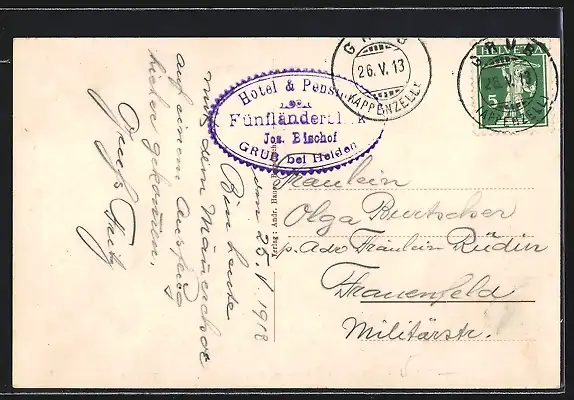 Hotel & Pension
Fünfländerblick
Jos. Bischof
GRUB bei Heiden
GRUB
26.V.13
(APPENZELL)
HELVETIA
5
GRUB
26.V.13
(APPENZELL)
den 25.V.1913
Bin heute
mit dem Männerchor
auf einem Ausflug
hieher gekommen.
Gruss Fritz
Verlag: Andr. Hane
Fräulein
Olga Burtscher
p. Adr Fräulein Rüdin
Frauenfeld
Militärstr.